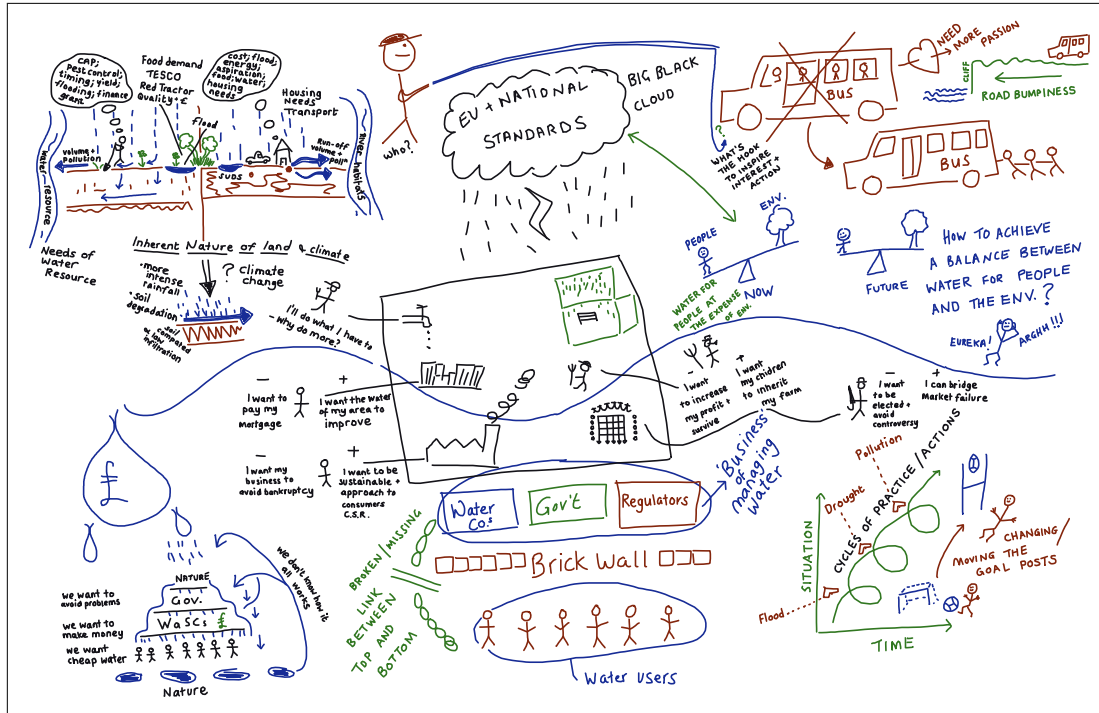 CAP;
Pest control;
timing; yield;
flooding; finance
grant
Food demand
TESCO
Red Tractor
Quality + £
cost; flood;
energy;
aspiration;
food; water;
housing
needs
Housing
Needs
Transport
flood
volume +
Pollution
Run-off
volume +
pollⁿ
SUDS
Water resource
River habitats
Needs of
Water
Resource
Inherent Nature of land & climate
? Climate
change
• more
intense
rainfall
• soil
degradation
soil
compacted
& low
infiltration
who?
EU + NATIONAL
STANDARDS
BIG BLACK
CLOUD
?
WHAT'S
THE HOOK
TO INSPIRE
INTEREST +
ACTION
BUS
NEED
MORE
PASSION
CLIFF
ROAD BUMPINESS
BUS
PEOPLE
ENV.
NOW
WATER FOR
PEOPLE AT
THE EXPENSE
OF ENV.
FUTURE
HOW TO ACHIEVE
A BALANCE BETWEEN
WATER FOR PEOPLE
AND THE ENV.?
EUREKA!
ARGHH!!!
I'll do what I have to
- why do more?
−
I want to
pay my
mortgage
+
I want the water
of my area to
improve
−
I want my
business to
avoid bankruptcy
+
I want to be
sustainable +
approach to
consumers
C.S.R.
−
I want
to increase
my profit +
survive
+
I want
my children
to inherit
my farm
−
I want
to be
elected +
avoid
controversy
+
I can bridge
Market failure
£
Water
Co.s
Gov't
Regulators
'Business'
of
managing
water
Brick Wall
BROKEN/MISSING
LINK
BETWEEN
TOP AND
BOTTOM
Water users
we don't know how it
all works
NATURE
Gov.
WaSCs £
we want to
avoid problems
we want to
make money
we want
cheap water
Nature
SITUATION
TIME
CYCLES OF PRACTICE/ACTIONS
Flood
Drought
Pollution
CHANGING/
MOVING THE
GOAL POSTS